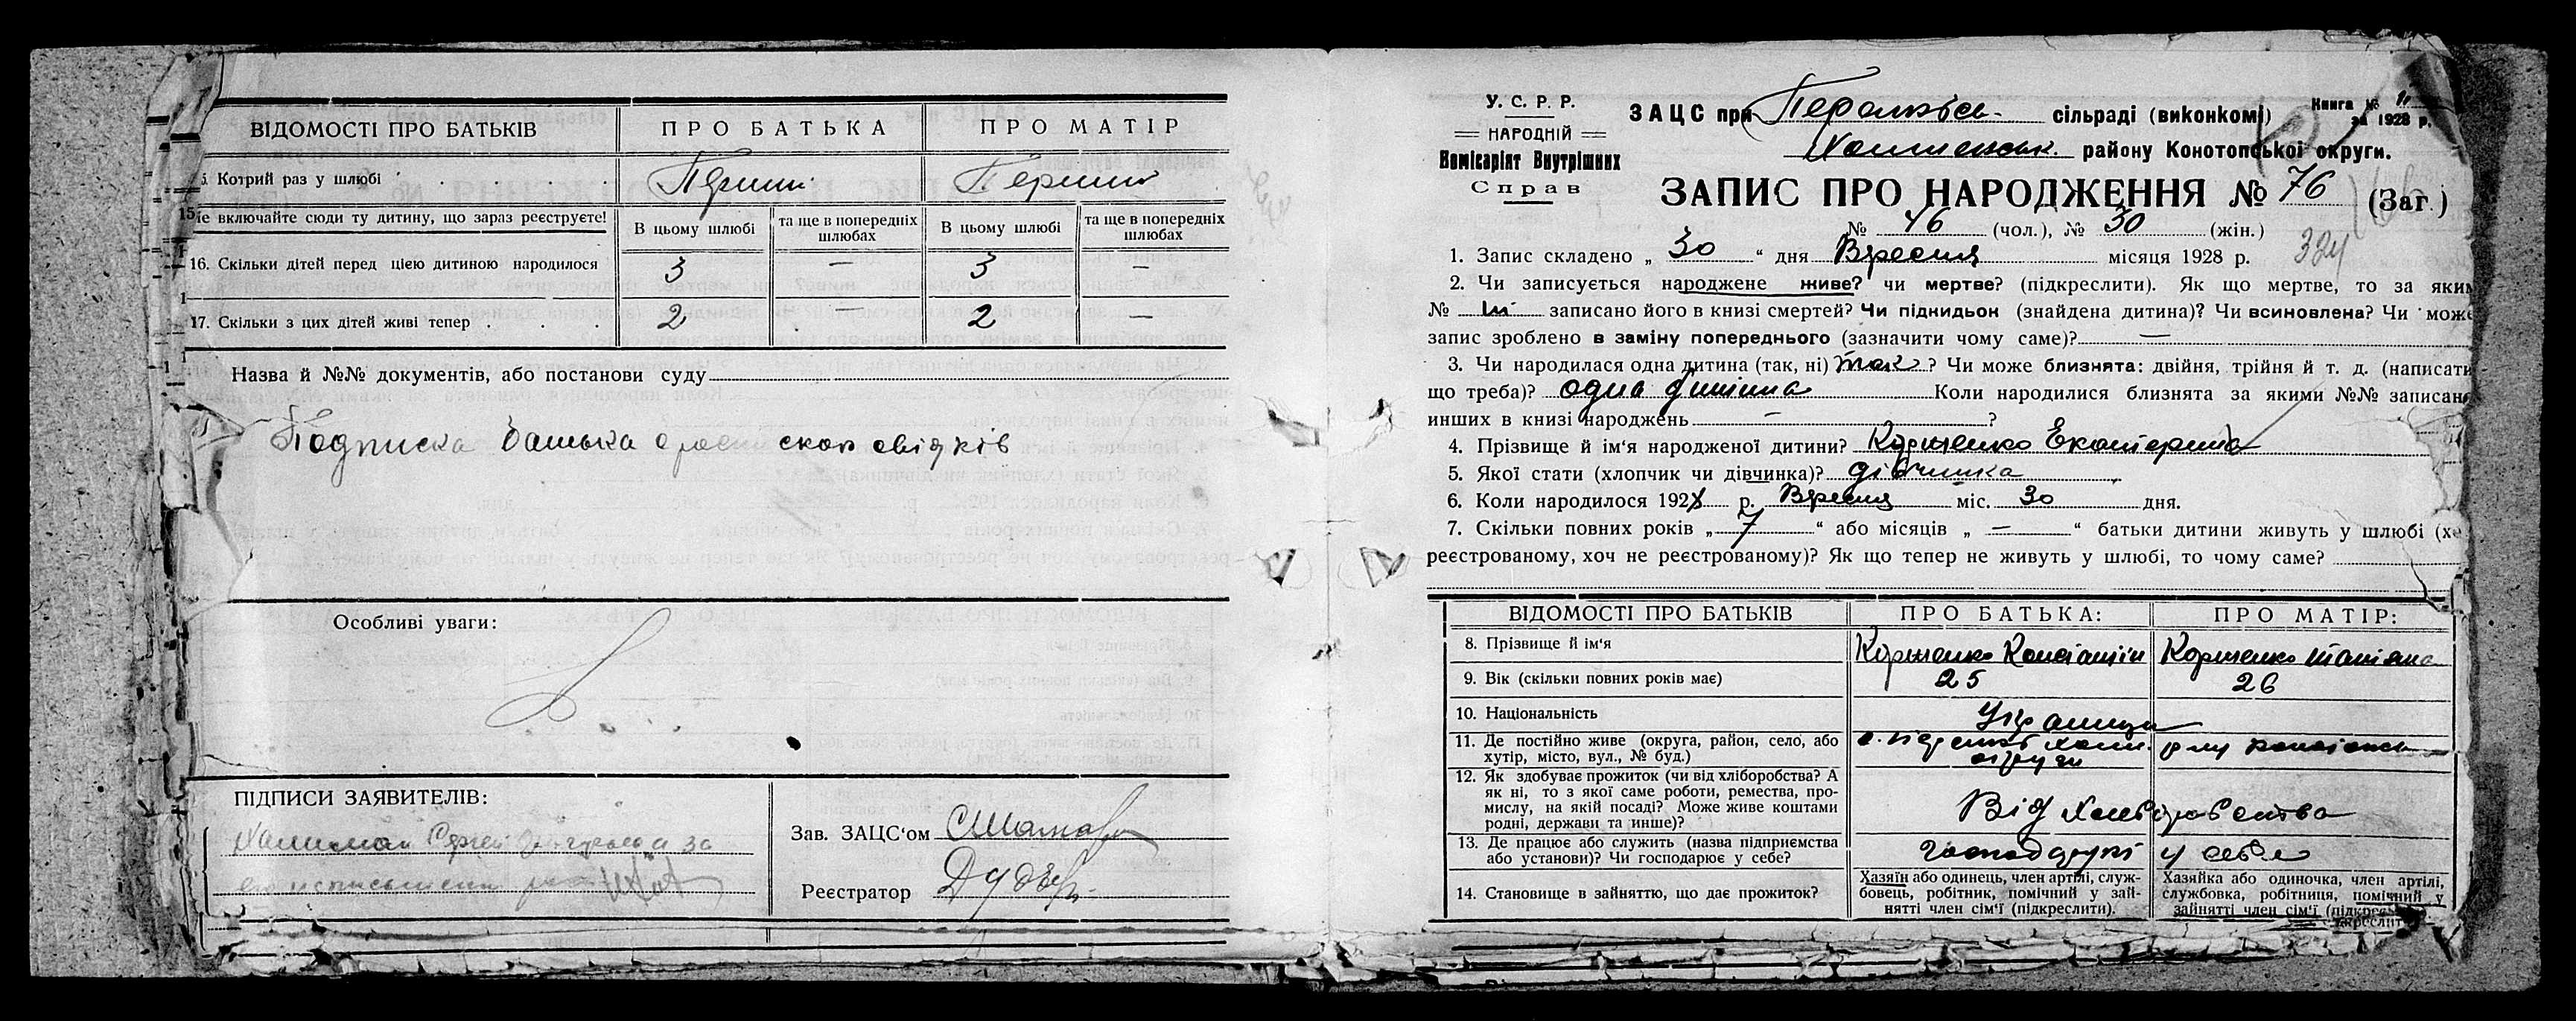 ВІДОМОСТІ ПРО БАТЬКІВ
ПРО БАТЬКА
ПРО МАТІР
5. Котрий раз у шлюбі
Перший
Перший
15
Не включайте сюди ту дитину, що зараз реєструєте!
В цьому шлюбі
та ще в попередніх шлюбах
В цьому шлюбі
та ще в попередніх шлюбах
16. Скільки дітей перед цією дитиною народилося
3 — 3 —
17. Скільки з цих дітей живі тепер
2 — 2 —
Назва й №№ документів, або постанови суду
Подписка батька свідків
Особливі уваги:
ПІДПИСИ ЗАЯВИТЕЛІВ:
Зав. ЗАЦС'ом
Реєстратор
У. С. Р. Р.
НАРОДНІЙ
Комісаріят Внутрішних
Справ
ЗАЦС при сільраді (виконкомі)
Книга №
за 1928 р.
району Конотопської округи.
ЗАПИС ПРО НАРОДЖЕННЯ № 76 (Заг.)
№ 46 (чол.), № 30 (жін.)
324
1. Запис складено „ 30 “ дня Вресня місяця 1928 р.
2. Чи записується народжене живе? чи мертве? (підкреслити). Як що мертве, то за яким
№ записано його в книзі смертей? Чи підкидьок (знайдена дитина)? Чи всиновлена? Чи може
запис зроблено в заміну попереднього (зазначити чому саме)? —
3. Чи народилася одна дитина (так, ні) так ? Чи може близнята: двійня, трійня й т. д. (написати
що треба)? одна дитина Коли народилися близнята за якими №№ записан
инших в книзі народжень — ?
4. Прізвище й ім'я народженої дитини? Коршенко Екатерина
5. Якої стати (хлопчик чи дівчинка)? дівчинка
6. Коли народилося 1928 р. Вресня міс. 30 дня.
7. Скільки повних років „ 7 “ або місяців „ — “ батьки дитини живуть у шлюбі (хо
реєстрованому, хоч не реєстрованому)? Як що тепер не живуть у шлюбі, то чому саме?
ВІДОМОСТІ ПРО БАТЬКІВ
ПРО БАТЬКА:
ПРО МАТІР:
8. Прізвище й ім'я
Коршенко Константін
Коршенко Татіяна
9. Вік (скільки повних років має)
25
26
10. Національність
Українци
11. Де постійно живе (округа, район, село, або
хутір, місто, вул., № буд.)
округи
12. Як здобуває прожиток (чи від хліборобства? А
як ні, то з якої саме роботи, ремества, про-
мислу, на якій посаді? Може живе коштами
родні, держави та инше)?
Від хлеборобства
13. Де працює або служить (назва підприємства
або установи)? Чи господарює у себе?
господарює у себе
14. Становище в зайняттю, що дає прожиток?
Хазяїн або одинець, член артілі, служ-
бовець, робітник, помічний у зай-
нятті член сім'ї (підкреслити).
Хазяйка або одиночка, член артілі,
службовка, робітниця, помічний у
зайнятті член сім'ї